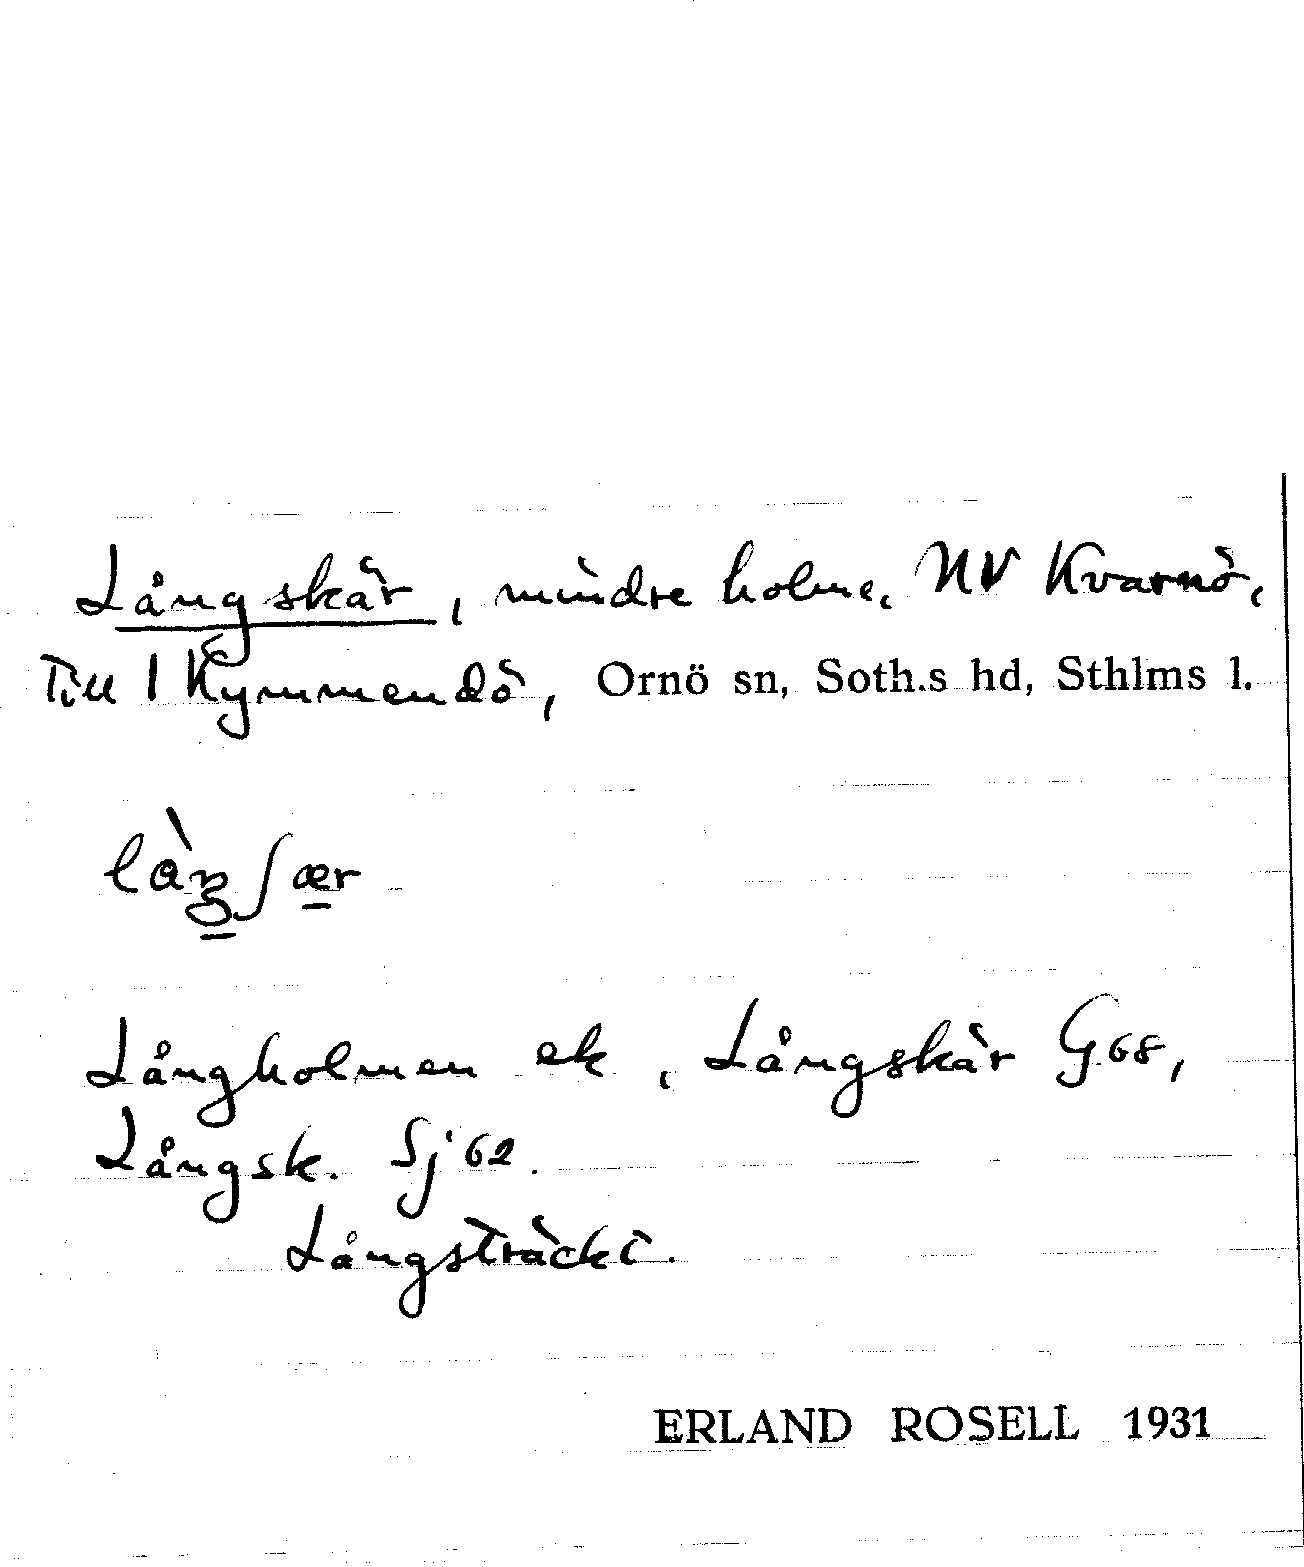 Långskär, mindre holme, NV Kvarnö,
Till 1 Kymmendö, Ornö sn, Soth.s hd, Sthlms l.
Långholmen ek, Långskär G68,
Långsk. Sj 62.
Långsträckt.
ERLAND ROSELL 1931